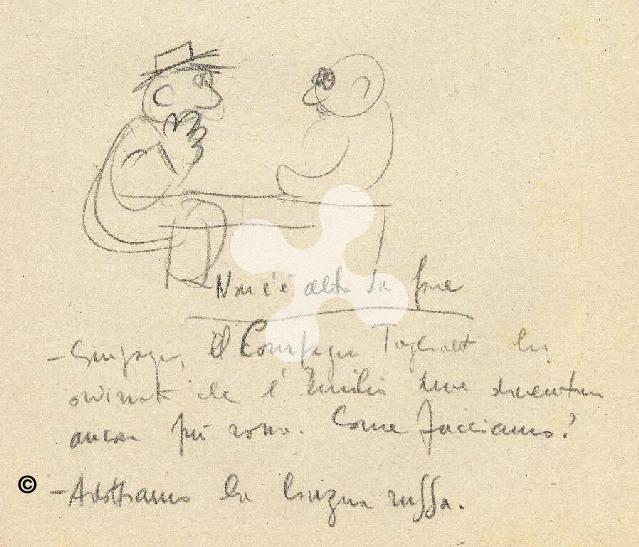 Non c'è altro da fare
- Compagni, il Compagno Togliatti ha
ordinato che l'Emilia deve diventare
ancor più rossa. Come facciamo?
© - Adottiamo la lingua russa.